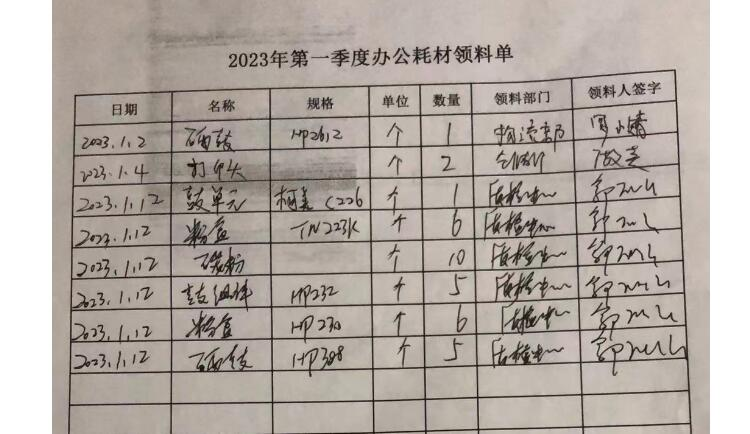 2023年第一季度办公耗材领料单
日期 名称 规格 单位 数量 领料部门 领料人签字
2023.1.2 硒鼓 HP2612 个 1 物流部
2023.1.4 打印头 个 2
2023.1.12 鼓单元 柯美 C226 个 1 质检中心
2023.1.12 粉盒 TN223K 个 6 质检中心
2023.1.12 碳粉 个 10 质检中心
2023.1.12 鼓组件 HP232 个 5 质检中心
2023.1.12 粉盒 HP230 个 6 质检中心
2023.1.12 硒鼓 HP388 个 5 质检中心